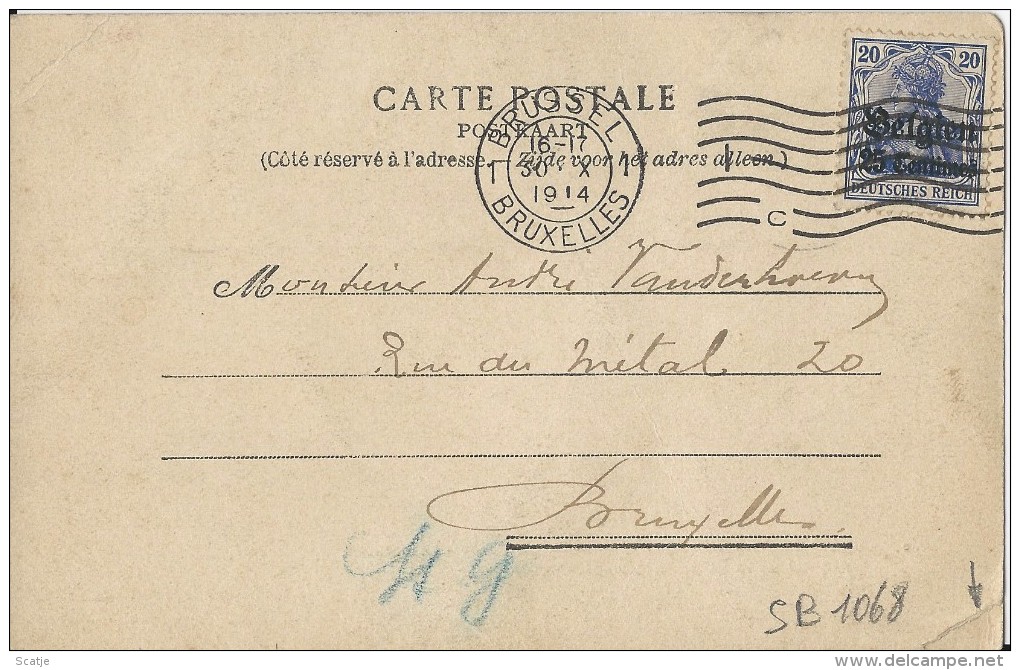 20 20
Belgien
25 Centimes
DEUTSCHES REICH
CARTE POSTALE
POSTKAART
(Côté réservé à l'adresse. — Zijde voor het adres alleen.)
BRÜSSEL
16-17
1 30 X 1
1914
BRUXELLES
C
Monsieur André
Rue du Métal 20
Bruxelles
SB 1068
Scatje
delcampe.net